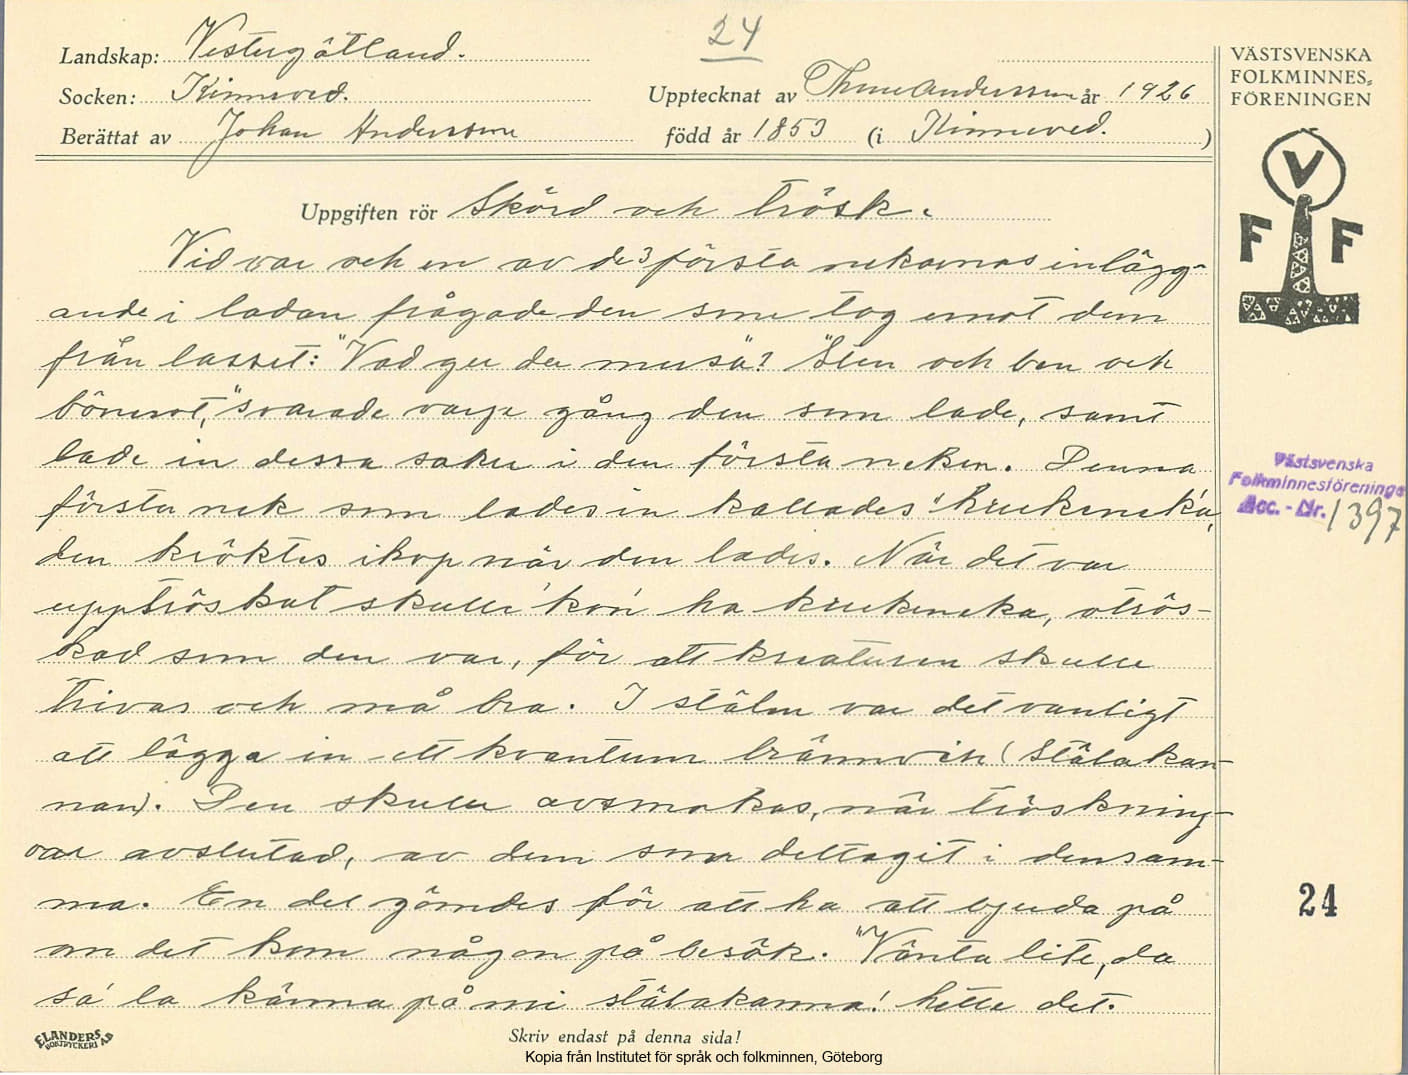 24
Landskap: Vestergötland.
Socken: Kinneved.
Upptecknat av Thure Andersson år 1926
Berättat av Johan Andersson född år 1853 (i Kinneved.)
VÄSTSVENSKA
FOLKMINNES-
FÖRENINGEN
V
F F
Uppgiften rör Skörd och trösk.
Vid var och en av de 3 första nekarnas inlägg-
ande i ladan frågade den som tog emot dem
från lasset: "Vad ger du mersä"? "Sten och ben och
bönerot," svarade varje gång den som lade, samt
lade in dessa saker i den första neken. Denna
första nek som lades in kallades "krukeneka",
den kröktes ihop när den lades. När det var
upptröskat skulle 'kon' ha krukeneka, otrös-
kad som den var, för att kreaturen skulle
trivas och må bra. I stålen var det vanligt
att lägga in ett kvantum brännvin (Stålakan-
nan). Den skulle avsmakas, när tröskning-
var avslutad, av dem som deltagit i densam-
ma. En del gömdes för att ha att bjuda på
om det kom någon på besök. "Vänta lite, da
sa' la känna på mi stålakanna! hette det.
Västsvenska
Folkminnesförening
Acc. - Nr. 1397
24
ELANDERS
BOKTRYCKERI AB
Skriv endast på denna sida!
Kopia från Institutet för språk och folkminnen, Göteborg